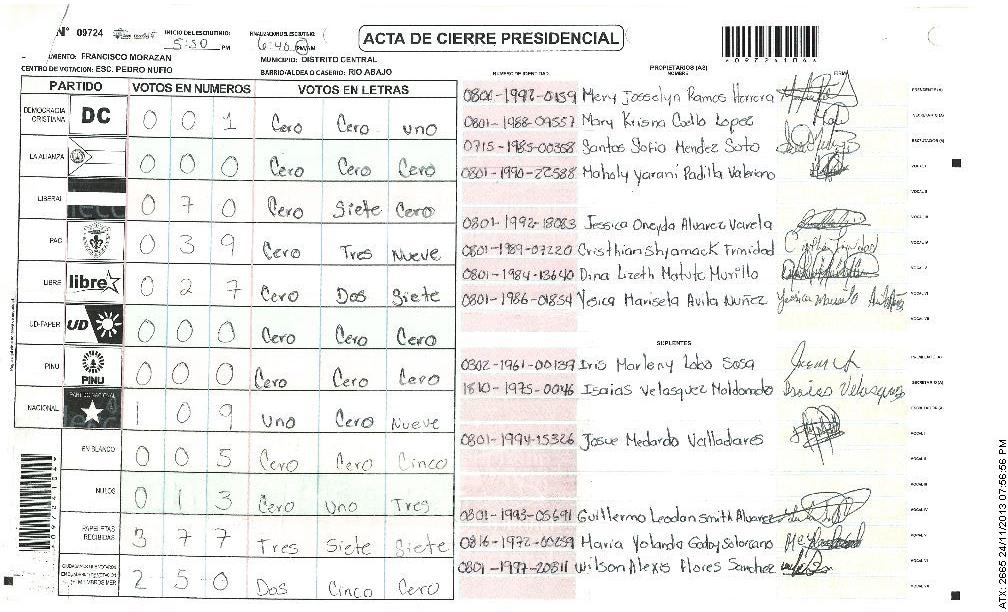 N° 09724
INICIO DEL ESCRUTINIO: 5:30 PM
FINALIZACION DEL ESCRUTINIO: 6:40 PM/AM
ACTA DE CIERRE PRESIDENCIAL
FRANCISCO MORAZAN
MUNICIPIO: DISTRITO CENTRAL
CENTRO DE VOTACION: ESC. PEDRO NUFIO
BARRIO/ALDEA O CASERIO: RIO ABAJO
PARTIDO VOTOS EN NUMEROS VOTOS EN LETRAS
DEMOCRACIA CRISTIANA DC 0 0 1 Cero Cero uno
LA ALIANZA 0 0 0 Cero Cero Cero
LIBERAL 0 7 0 Cero Siete Cero
PAC 0 3 9 Cero Tres Nueve
LIBRE libre 0 2 7 Cero Dos Siete
UD-FAPER UD 0 0 0 Cero Cero Cero
PINU PINU 0 0 0 Cero Cero Cero
NACIONAL 1 0 9 uno Cero Nueve
EN BLANCO 0 0 5 Cero Cero Cinco
NULOS 0 1 3 Cero uno Tres
PAPELETAS RECIBIDAS 3 7 7 Tres Siete Siete
2 5 0 Dos Cinco Cero
NUMERO DE IDENTIDAD
PROPIETARIOS (AS)
NOMBRE
FIRMA
0801-1992-0159 Mery Josselyn Ramos Herrera PRESIDENTE(A)
0801-1988-09557 Mary Krisna Coello Lopez SECRETARIO(A)
0715-1985-00358 Santos Sofia Mendez Soto ESCRUTADOR(A)
0801-1990-22588 Maholy Yarani Padilla Valeriano VOCAL I
VOCAL II
0801-1992-18083 Jessica Oneyda Alvarez Varela VOCAL III
0801-1989-07220 Cristhian Shyamack Trinidad VOCAL IV
0801-1984-13640 Dina Lizeth Matute Murillo VOCAL V
0801-1986-01854 Yesica Marisela Avila Nuñez VOCAL VI
VOCAL VII
SUPLENTES
0302-1961-00139 Iris Marleny Lobo Sosa PRESIDENTE(A)
1810-1975-0046 Isaias Velasquez Maldonado Isaias Velasquez SECRETARIO(A)
ESCRUTADOR(A)
0801-1994-15326 Josue Medardo Valladares VOCAL I
VOCAL II
VOCAL III
0801-1993-05691 Guillermo Leodan Smith Alvarez VOCAL IV
0816-1972-00259 Maria Yolanda Godoy Solorzano VOCAL V
0801-1977-20811 Wilson Alexis Flores Sanchez VOCAL VI
VOCAL VII
ATX: 2665 24/11/2013 07:56:56 PM